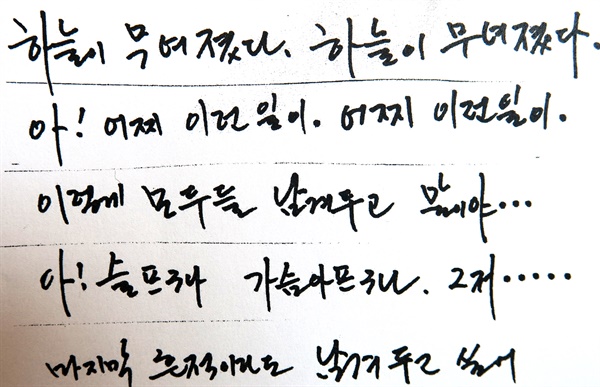 하늘이 무너졌다. 하늘이 무너졌다.
아! 어찌 이런 일이. 어찌 이런 일이.
이렇게 모두들 남겨두고 말이야...
아! 슬프구나 가슴아프구나. 그저.....
마지막 흔적이라도 남겨두고 싶어